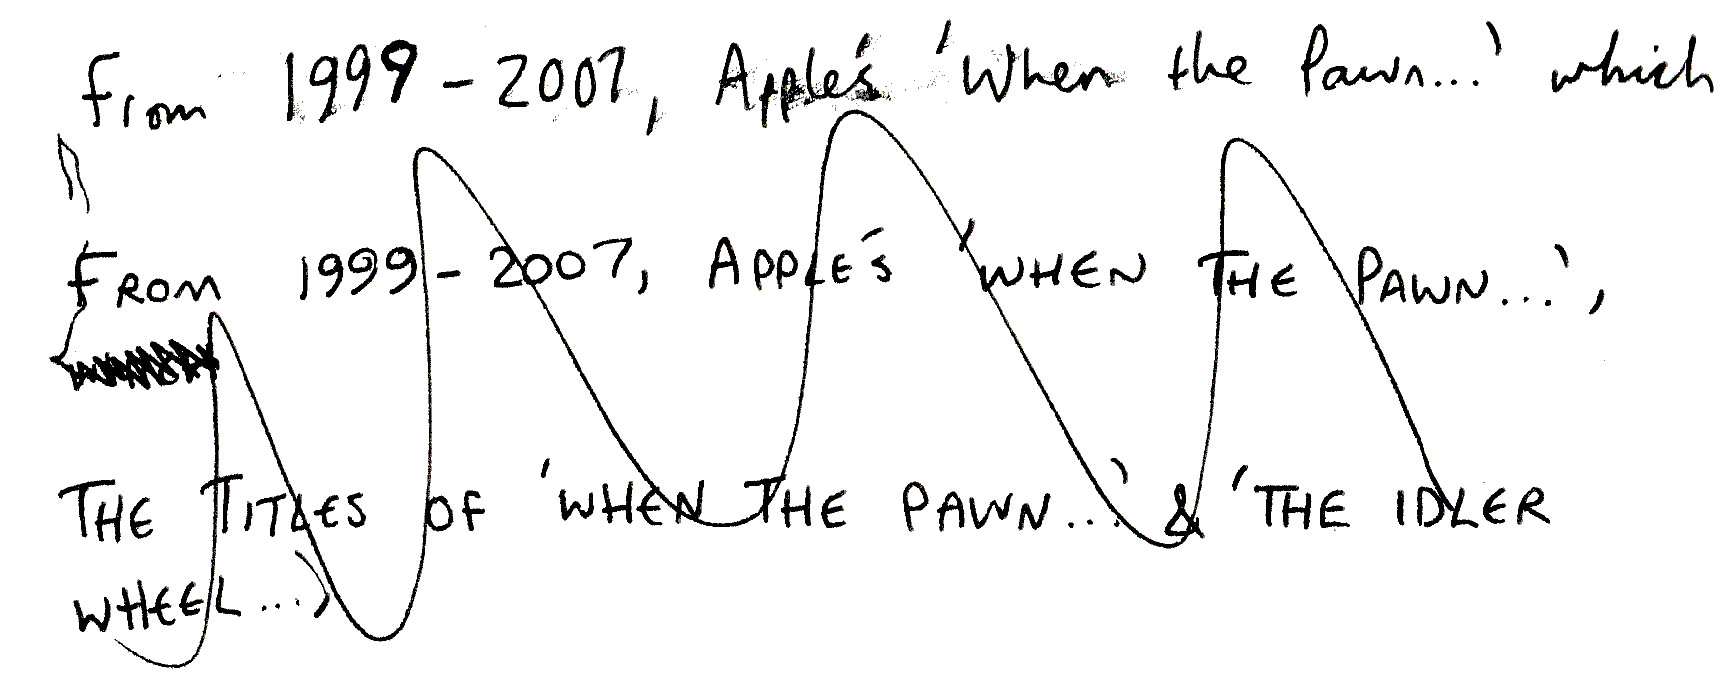 From 1999-2007, Apple's 'When the Pawn...' which
FROM 1999-2007, APPLE'S 'WHEN THE PAWN...',
THE TITLES OF 'WHEN THE PAWN...' & 'THE IDLER
WHEEL...'